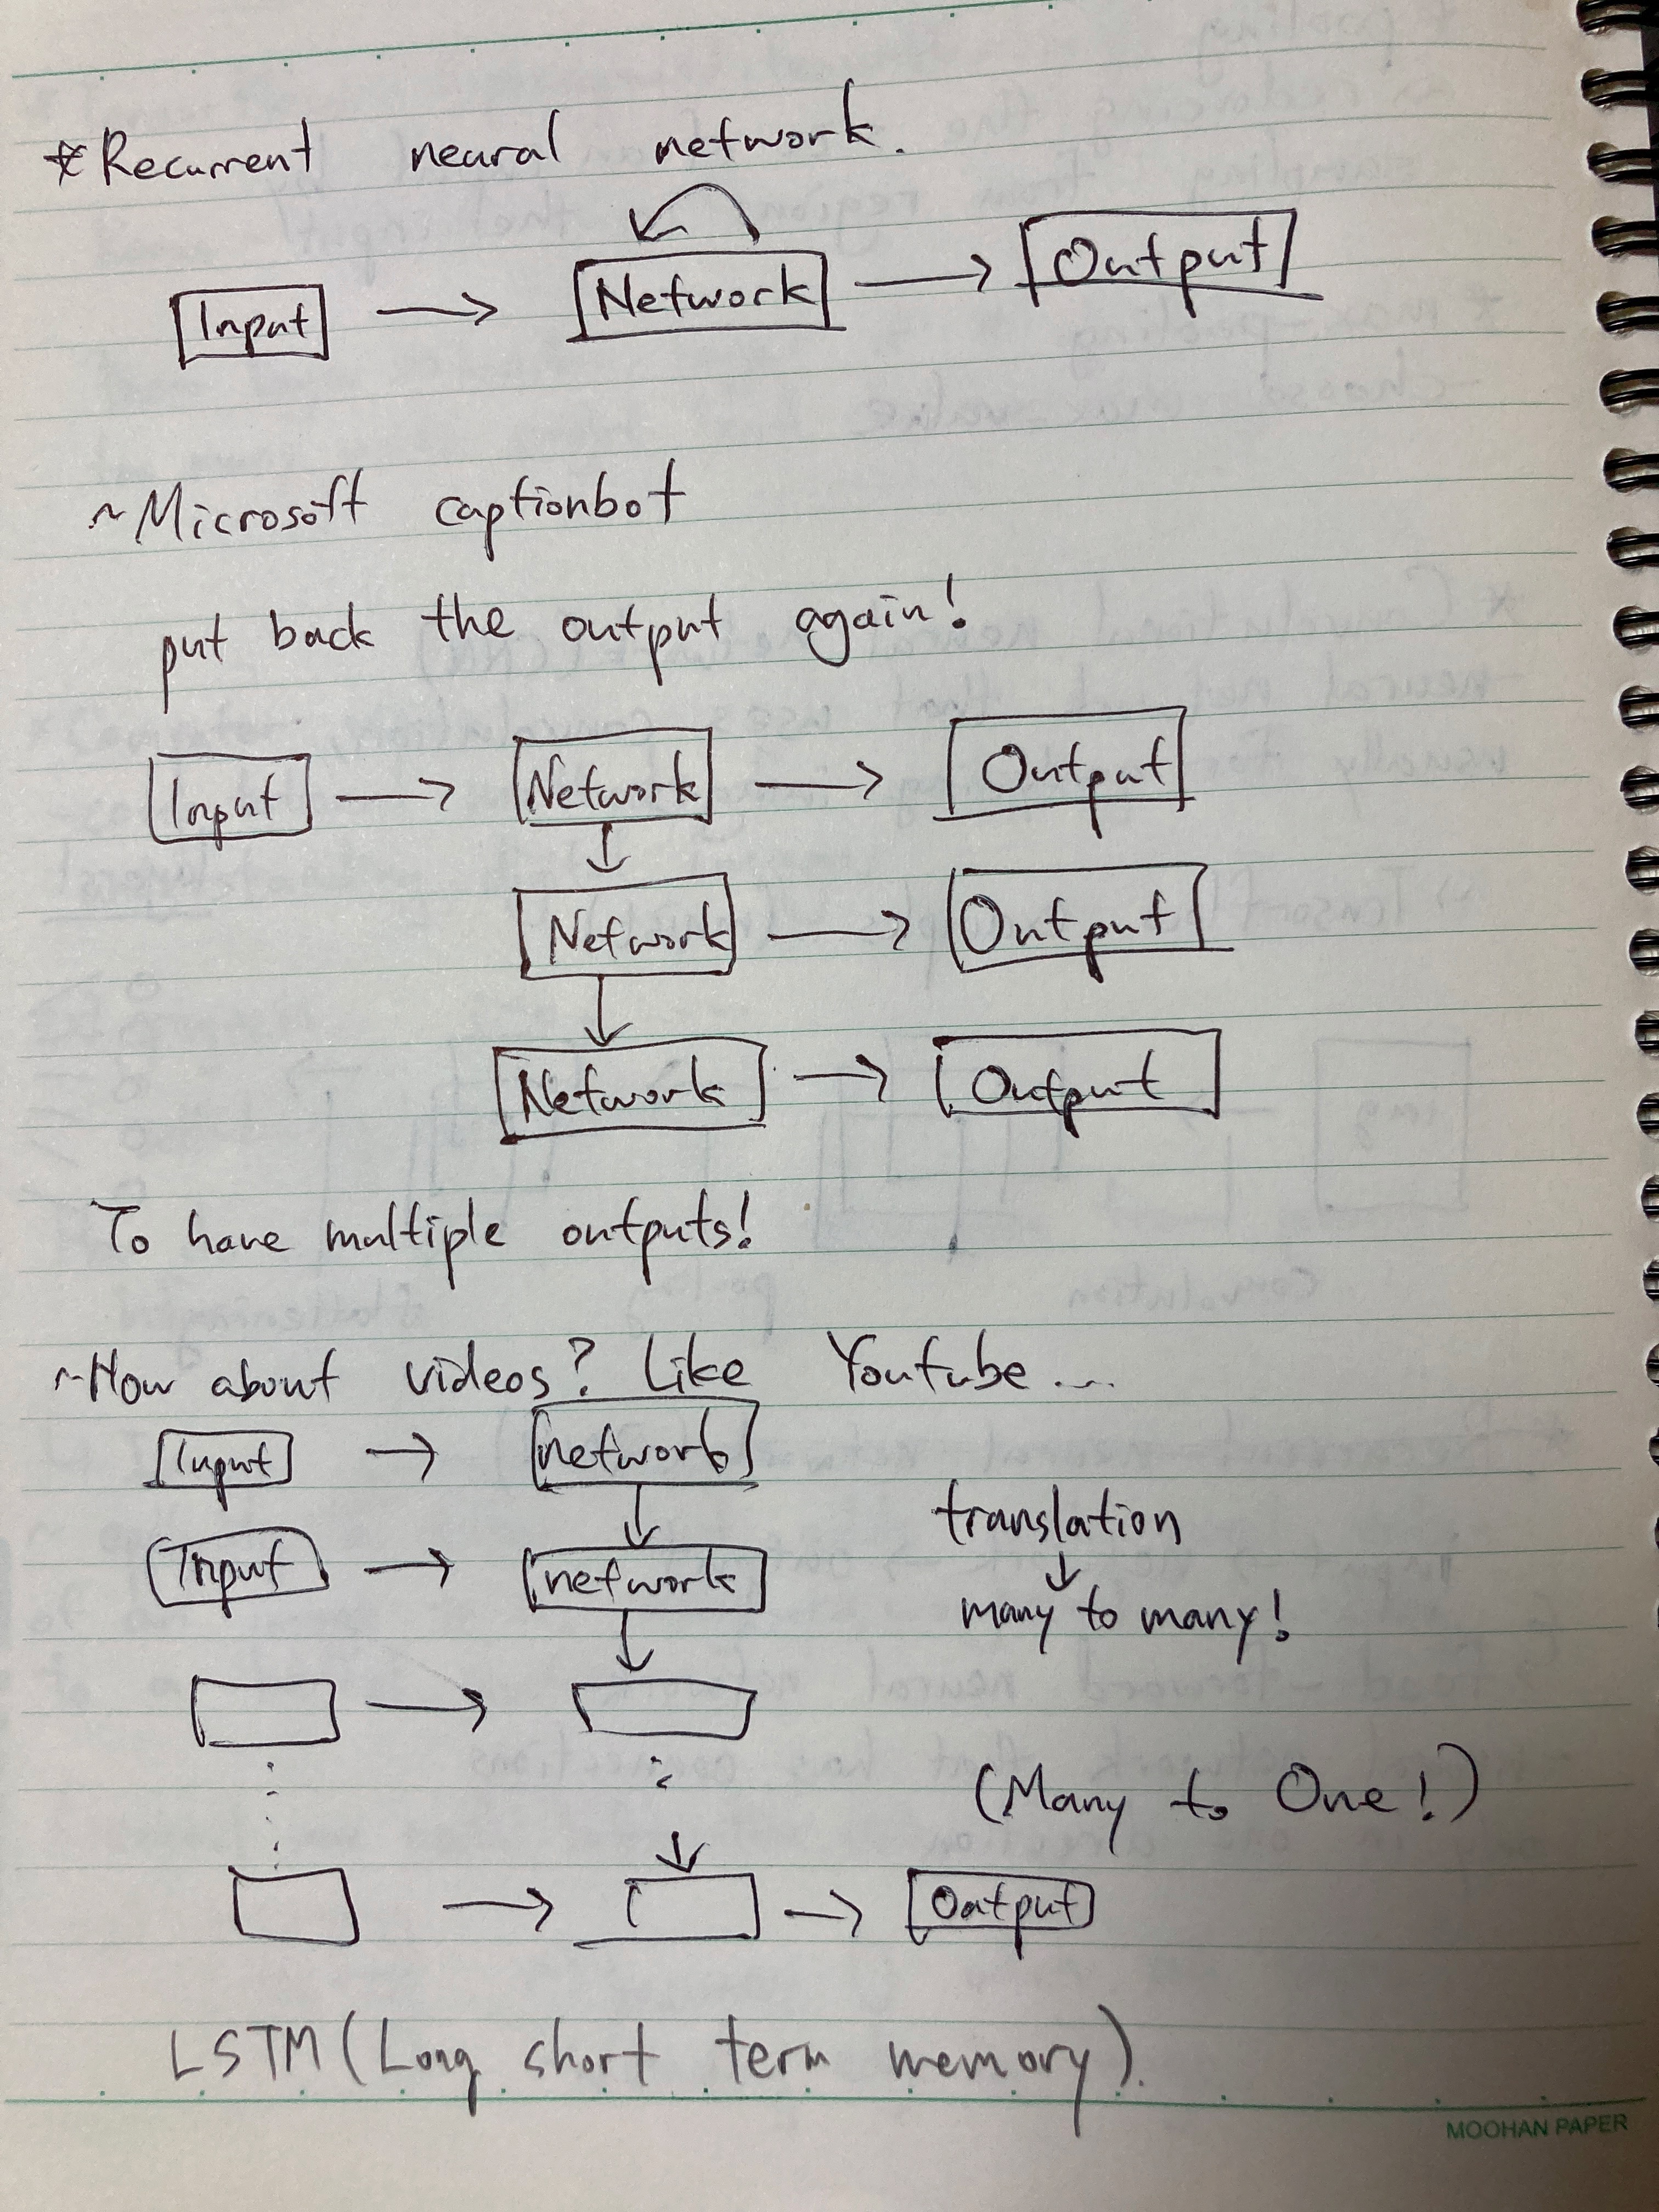 *Recurrent neural network.
Input → Network → Output
~Microsoft captionbot
put back the output again!
Input → Network → Output
Network → Output
Network → Output
To have multiple outputs!
~How about videos? Like Youtube....
Input → network
Input → network
translation
↓
many to many!
(Many to One!)
Output
LSTM (Long short term memory).
MOOHAN PAPER